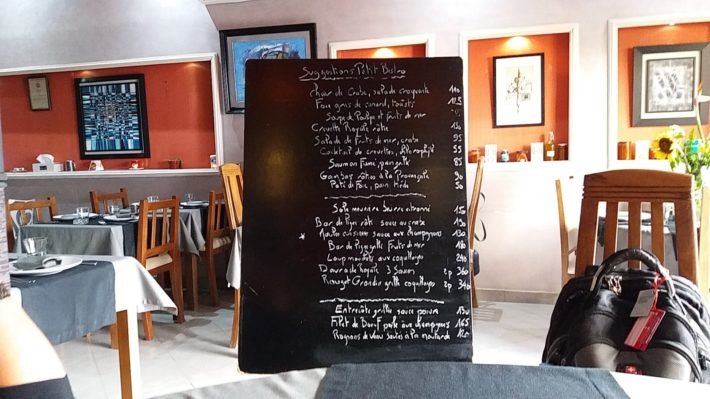 Suggestions Petit Bistro
Chair de Crabe, salade croquante 110
Foie gras de canard, toasts 125
Soupe de Poisson et fruits de mer
Crevette Royale rôtie 130
Salade de fruits de mer, crabe 95
Cocktail de crevettes, 55
Saumon Fumé, pain grillé 85
Gambas rôties à la Provençale 90
Paté de Foie, pain 50
Sole meunière beurre citronné 150
Bar de ligne rôti sauce au crabe
sauce aux champignons 130
Bar de Fruits de mer 180
Loup aux coquillages 240
Daurade Royale 3 Saveurs 2p 360
Rouget Grondin grillé coquillages 2p 340
Entrecôte grillée sauce poivre 150
Filet de Boeuf poêlé aux champignons 165
Rognons de veau sautés à la moutarde